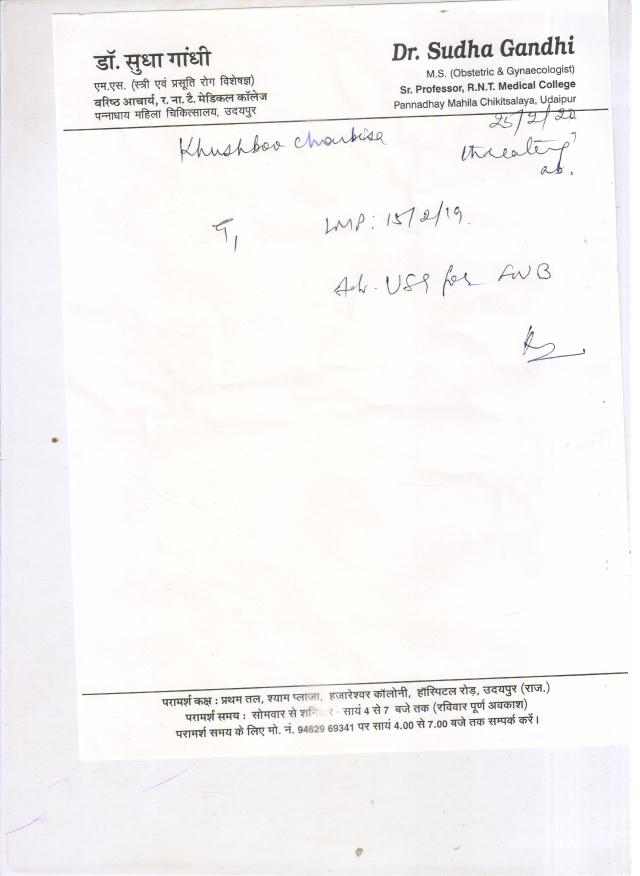 डॉ. सुधा गांधी
एम.एस. (स्त्री एवं प्रसूति रोग विशेषज्ञ)
वरिष्ठ आचार्य, र. ना. टै. मेडिकल कॉलेज
पन्नाधाय महिला चिकित्सालय, उदयपुर
Dr. Sudha Gandhi
M.S. (Obstetric & Gynaecologist)
Sr. Professor, R.N.T. Medical College
Pannadhay Mahila Chikitsalaya, Udaipur
25/2/20
Khushboo Choubisa
ab.
LMP: 15/2/19.
Adv. USG for FWB
परामर्श कक्ष : प्रथम तल, श्याम प्लाजा, हजारेश्वर कॉलोनी, हॉस्पिटल रोड़, उदयपुर (राज.)
परामर्श समय : सोमवार से शनिवार - सायं 4 से 7 बजे तक (रविवार पूर्ण अवकाश)
परामर्श समय के लिए मो. नं. 94629 69341 पर सायं 4.00 से 7.00 बजे तक सम्पर्क करें।